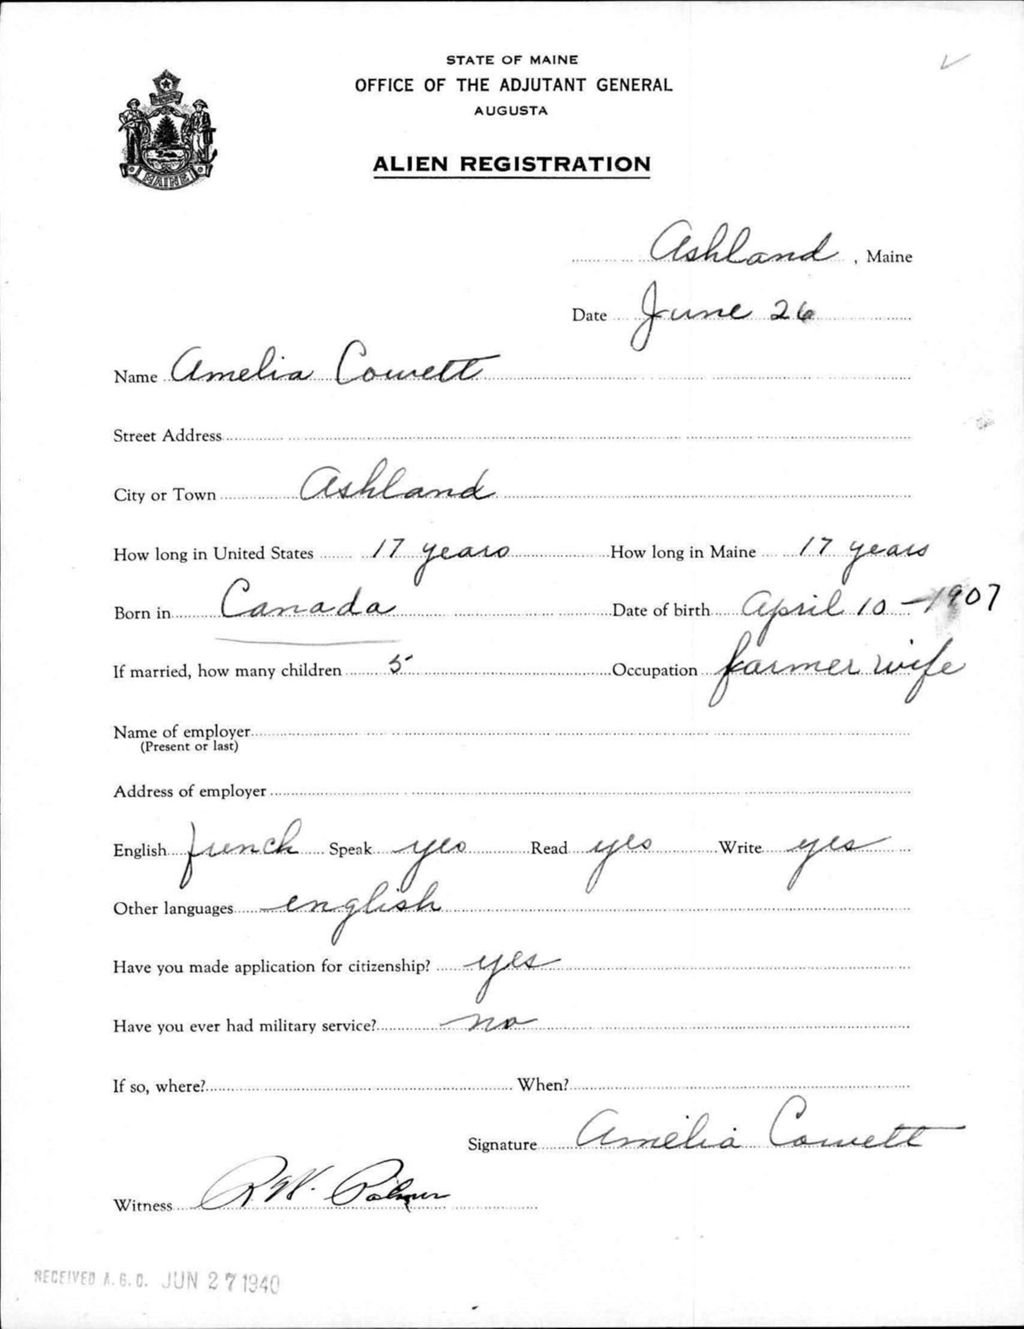 STATE OF MAINE
OFFICE OF THE ADJUTANT GENERAL
AUGUSTA
ALIEN REGISTRATION
MAINE
Ashland, Maine
Date June 26
Name Amelia Cowett
Street Address
City or Town Ashland
How long in United States 17 years How long in Maine 17 years
Born in Canada Date of birth April 10 - 1907
If married, how many children 5 Occupation farmer wife
Name of employer
(Present or last)
Address of employer
English french Speak yes Read yes Write yes
Other languages english
Have you made application for citizenship? yes
Have you ever had military service? no
If so, where? When?
Signature Amelia Cowett
Witness R W. Palmer
RECEIVED A.G.O. JUN 27 1940